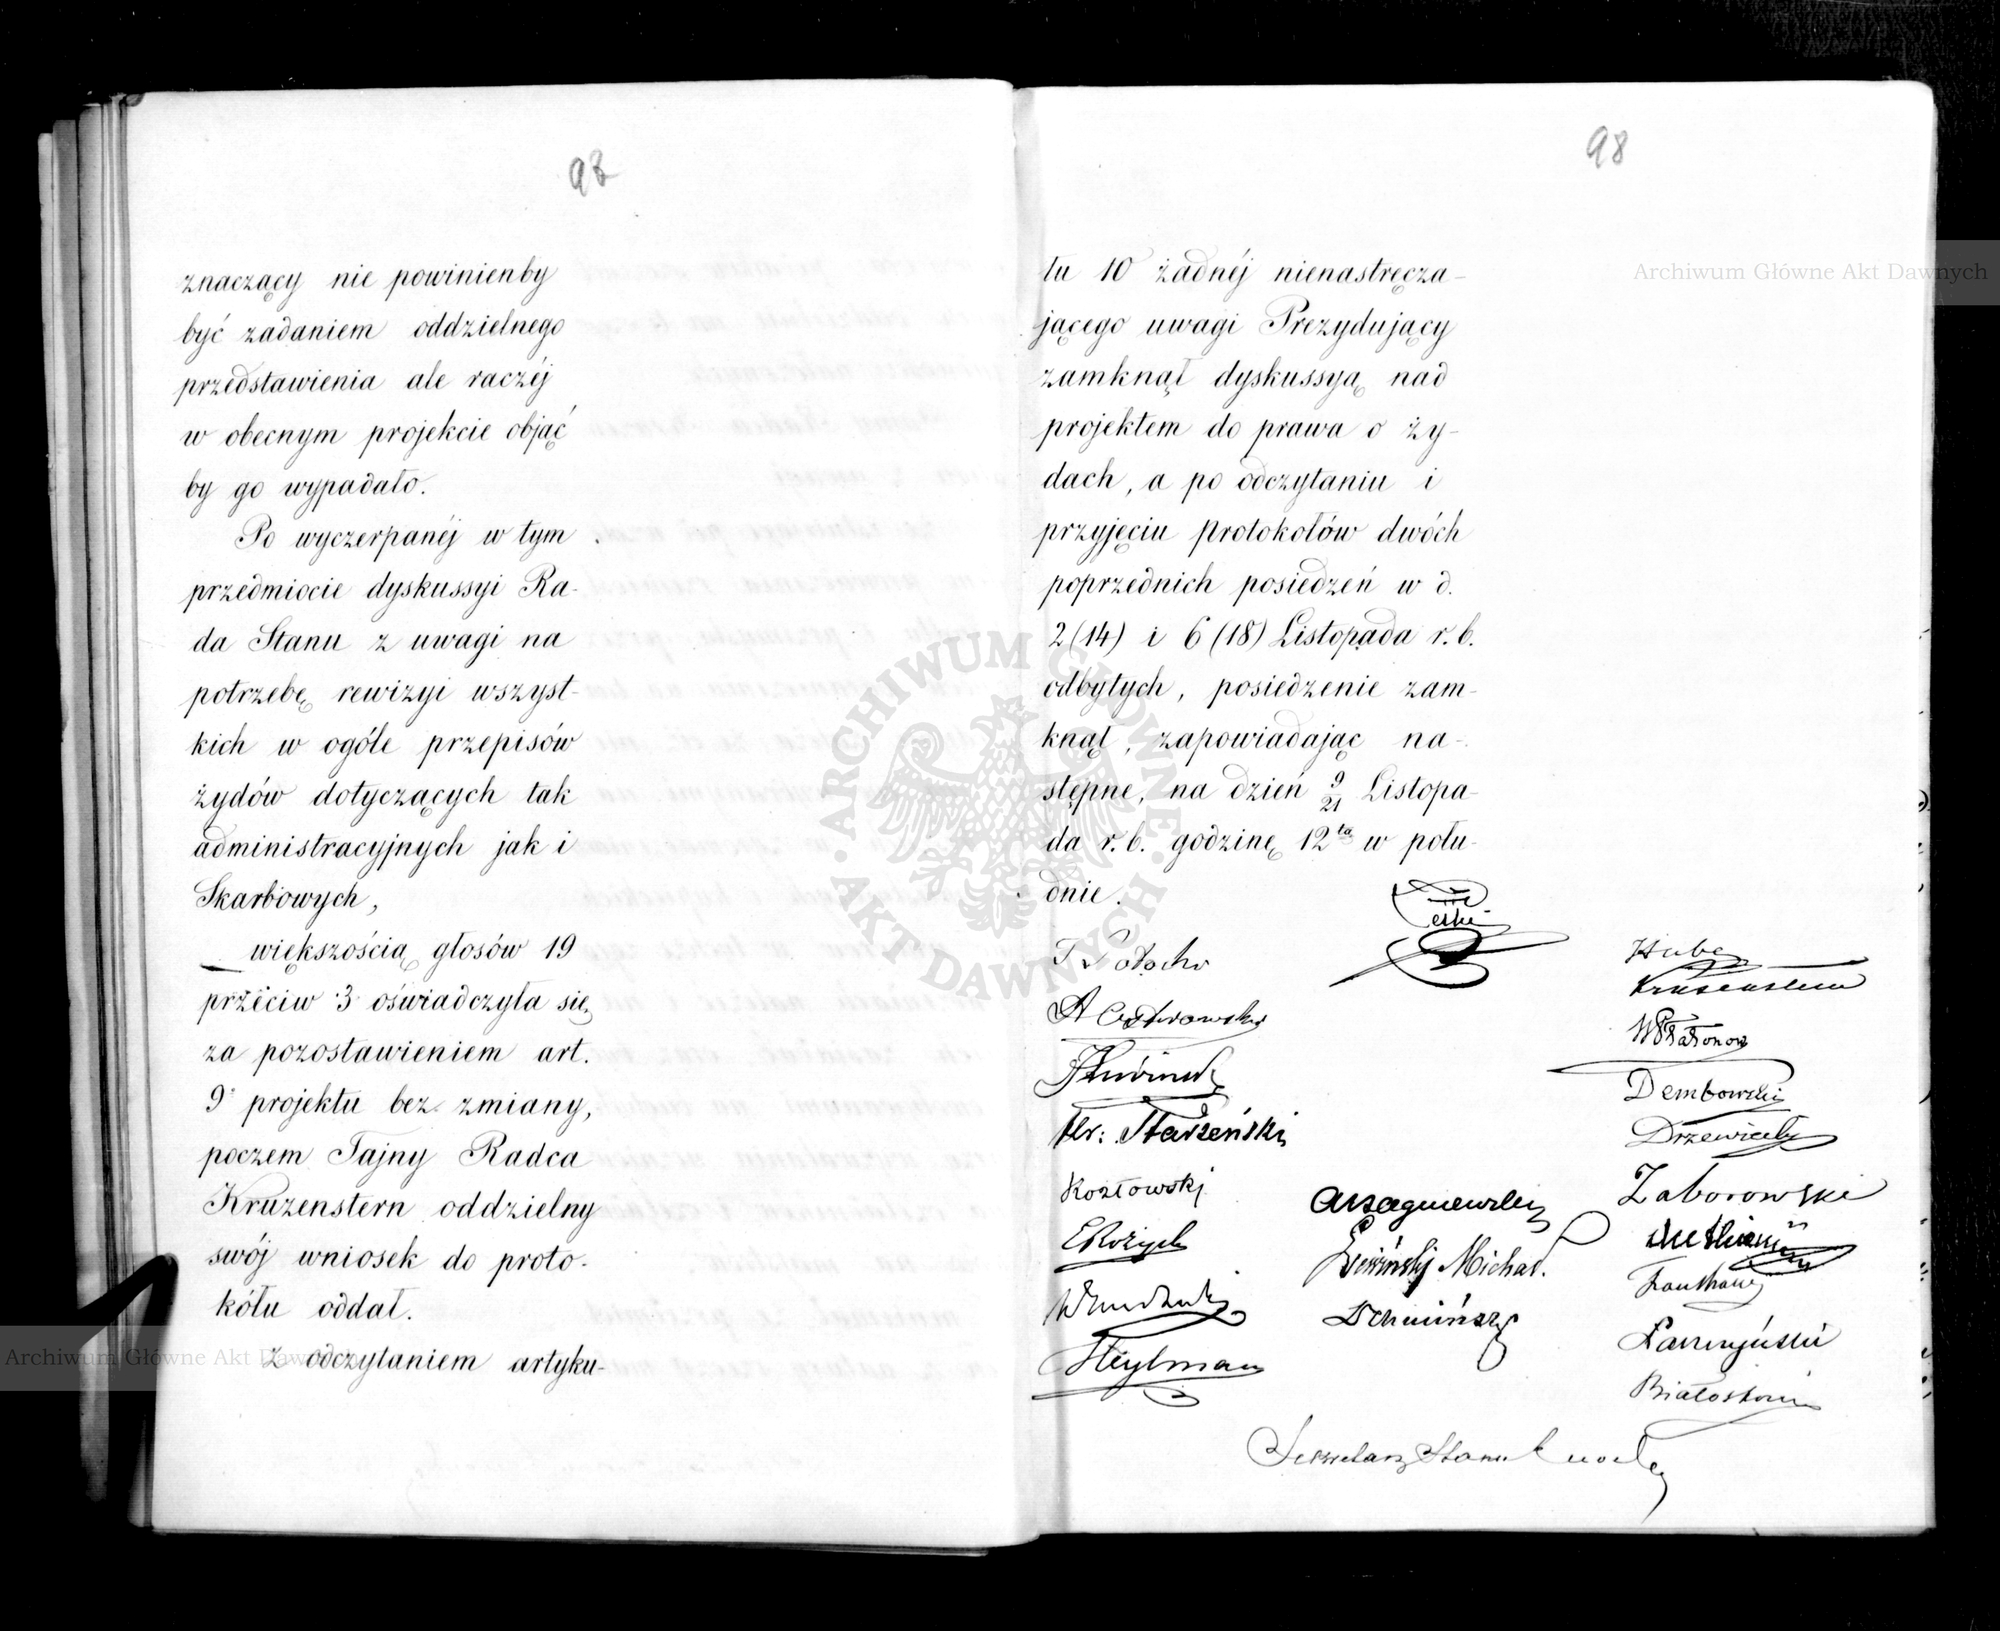 znaczący nie powinienby
być zadaniem oddzielnego
przedstawienia ale raczéj
w obecnym projekcie objąć
by go wypadało.
Po wyczerpanéj w tym
przedmiocie dyskussyi Ra-
da Stanu z uwagi na
potrzebę rewizyi wszyst-
kich w ogóle przepisów
żydów dotyczących tak
administracyjnych jak i
Skarbowych,
większością głosów 19
przeciw 3 oświadczyła się
za pozostawieniem art.
9 projektu bez zmiany,
poczem Tajny Radca
Kruzenstern oddzielny
swój wniosek do proto-
kółu oddał.
Z odczytaniem artyku-
98
łu 10 żadnéj nienastręcza-
jącego uwagi Prezydujący
zamknął dyskussyą nad
projektem do prawa o ży-
dach, a po odczytaniu i
przyjęciu protokołów dwóch
poprzednich posiedzeń w d.
2 (14) i 6 (18) Listopada r. b.
odbytych, posiedzenie zam-
knął, zapowiadając na-
stępne, na dzień 9/21 Listopa-
da r. b. godzinę 12tą w połu-
dnie.
A Ostrowski
Hr: Starzeński
Kozłowski
Heylman
Hube
Kruzenstern
Dembowski
Drzewiecki
Zaborowski
Białoskórski
Sekretarz Stanu
Archiwum Główne Akt Dawnych
Archiwum Główne Akt Dawnych
ARCHIWUM GŁÓWNE AKT DAWNYCH